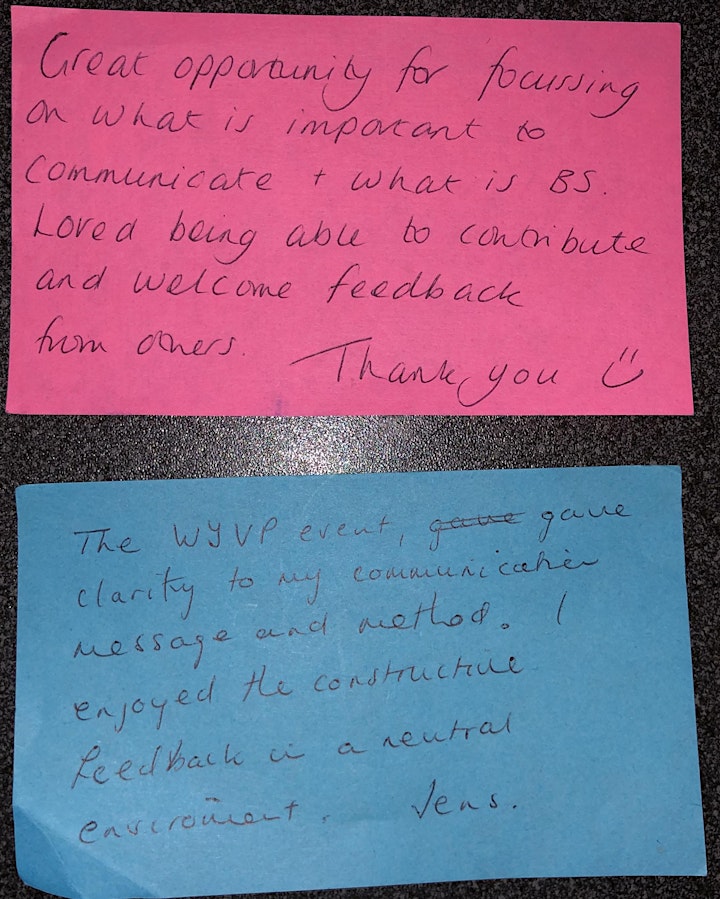 Great opportunity for focussing
on what is important to
communicate + what is BS.
Loved being able to contribute
and welcome feedback
from others. Thank you
The WYVP event, gave gave
clarity to my communication
message and method. I
enjoyed the constructive
feedback in a neutral
enviroment. Jens.